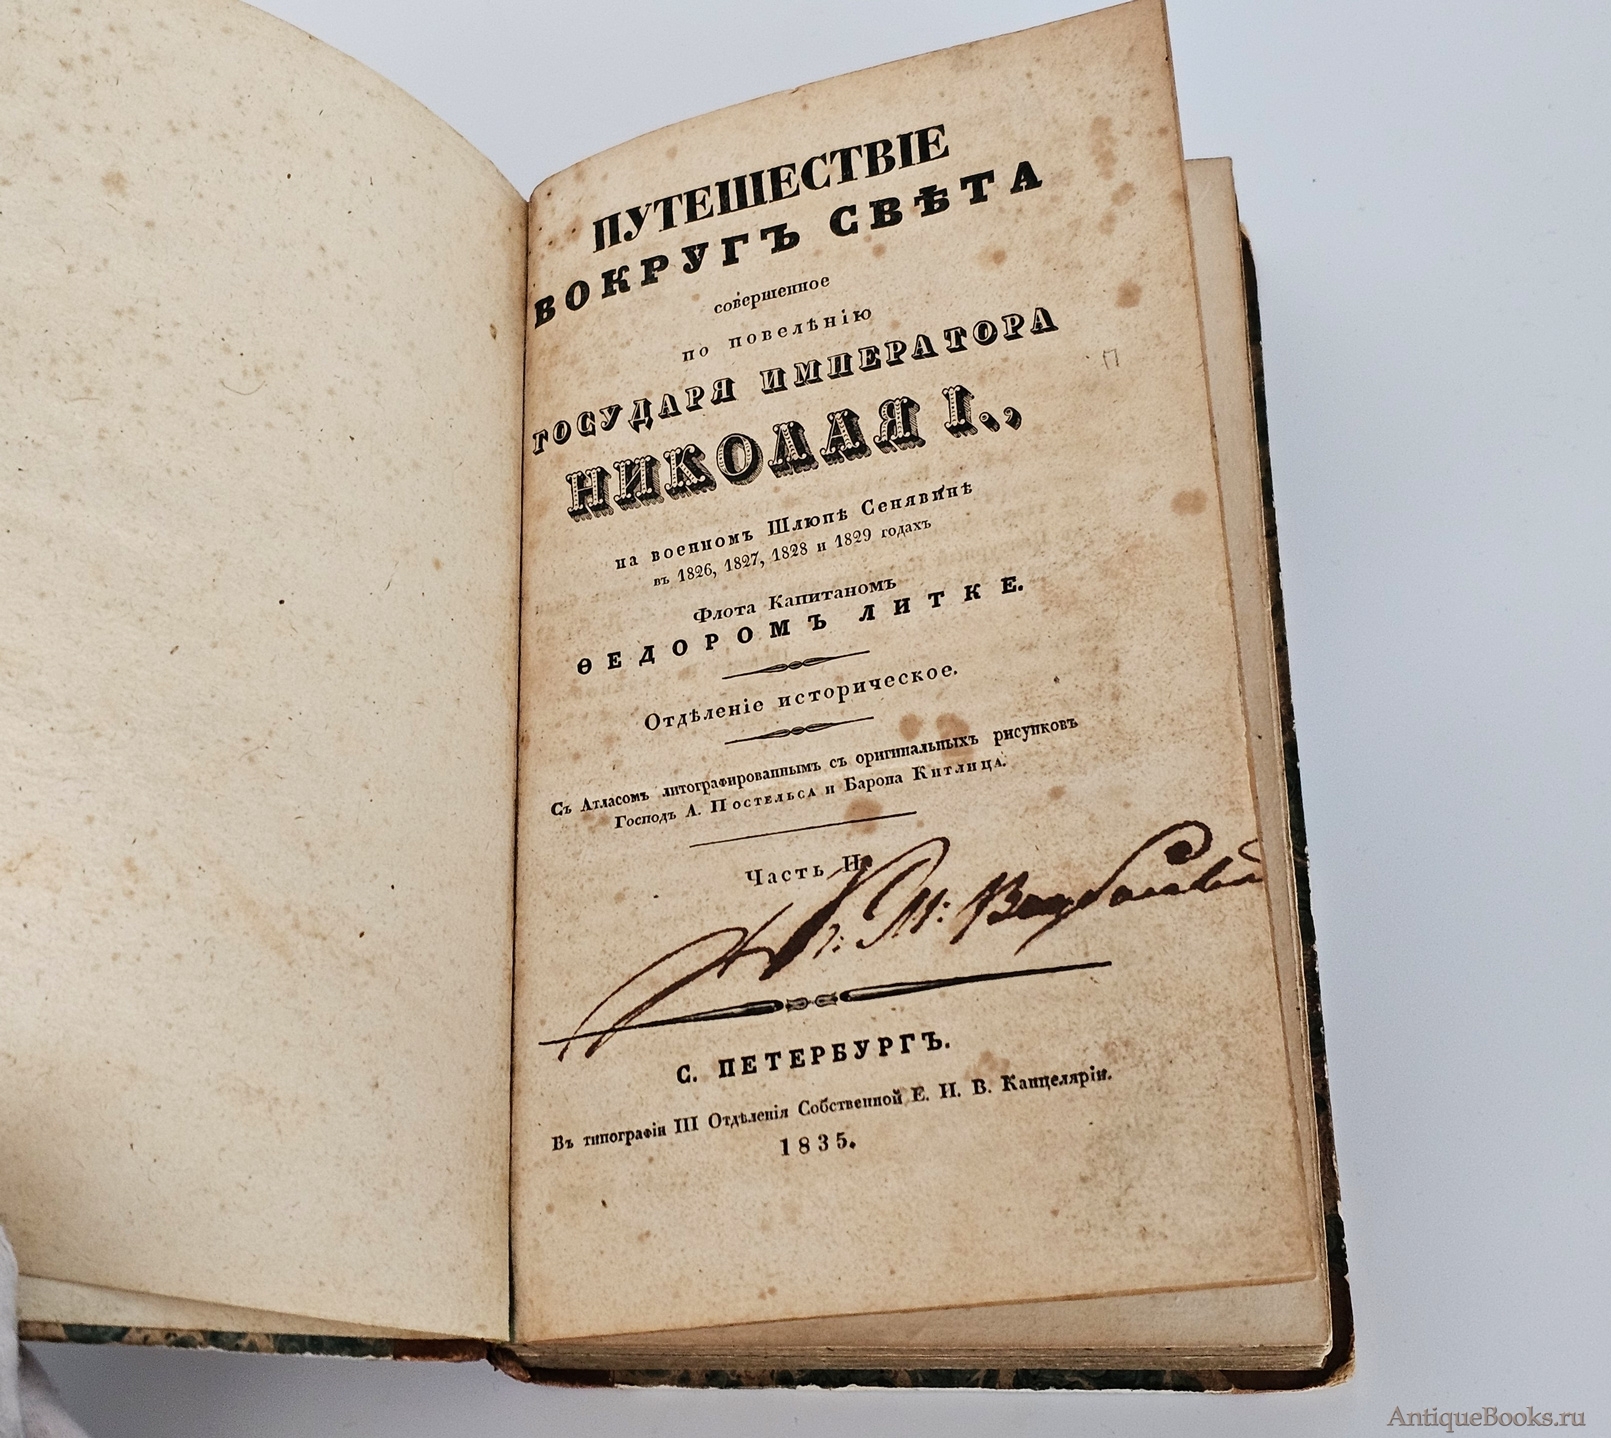 ПУТЕШЕСТВІЕ
ВОКРУГЪ СВѢТА
совершенное
по повелѣнію
ГОСУДАРЯ ИМПЕРАТОРА
НИКОЛАЯ I.,
на военномъ Шлюпѣ Сенявинѣ
въ 1826, 1827, 1828 и 1829 годахъ
Флота Капитаномъ
ѲЕДОРОМЪ ЛИТКЕ.
Отдѣленіе историческое.
Съ Атласомъ литографированнымъ съ оригинальныхъ рисунковъ
Господъ А. Постельса и Барона Китлица.
Часть II.
С. ПЕТЕРБУРГЪ.
Въ типографіи III Отдѣленія Собственной Е. И. В. Канцеляріи.
1835.
AntiqueBooks.ru